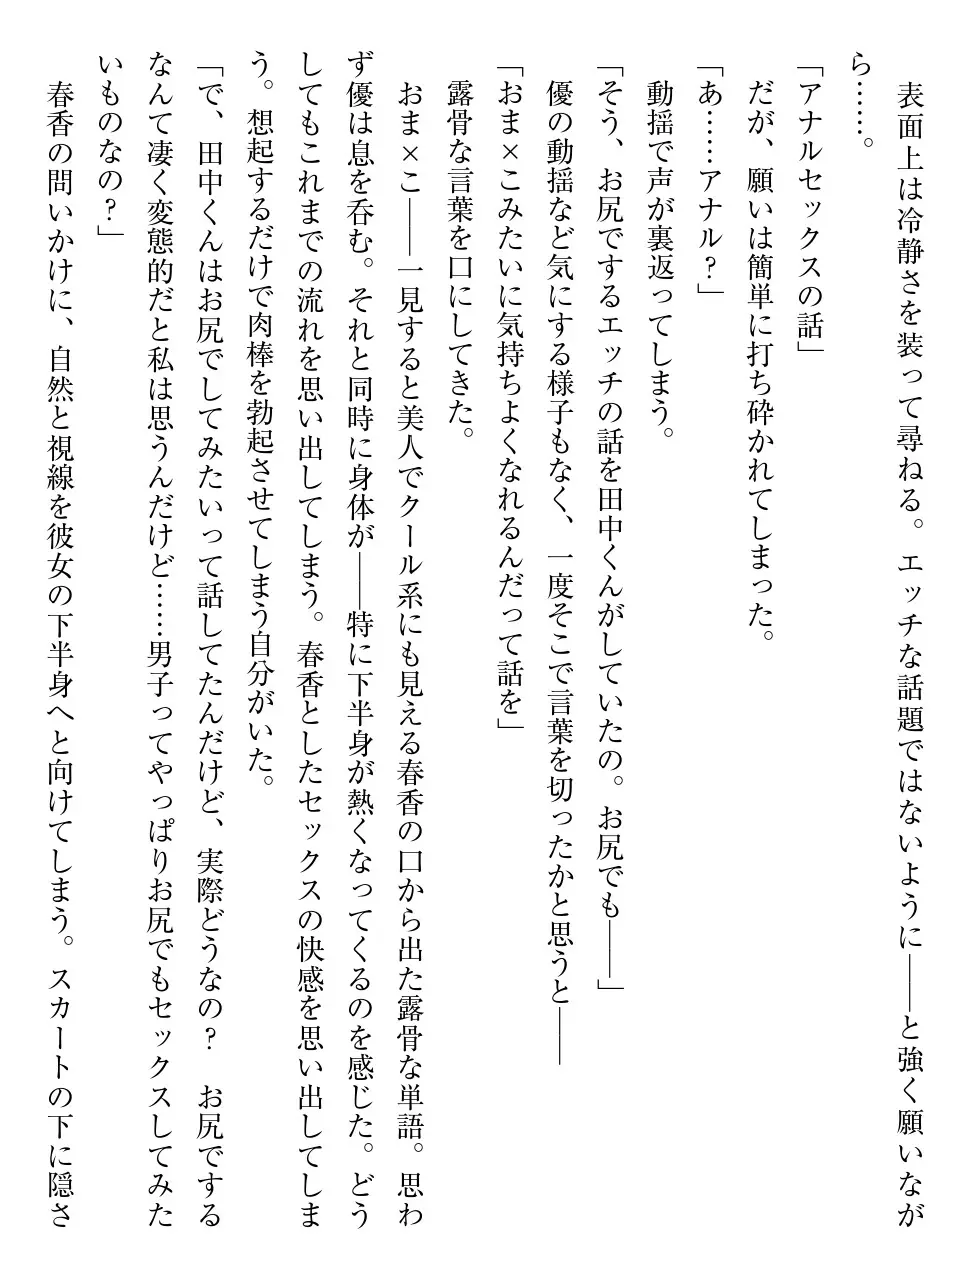 表面上は冷静さを装って尋ねる。エッチな話題ではないように――と強く願いなが
ら……。
「アナルセックスの話」
　だが、願いは簡単に打ち砕かれてしまった。
「あ……アナル？」
　動揺で声が裏返ってしまう。
「そう、お尻でするエッチの話を田中くんがしていたの。お尻でも――」
　優の動揺など気にする様子もなく、一度そこで言葉を切ったかと思うと――
「おま×こみたいに気持ちよくなれるんだって話を」
　露骨な言葉を口にしてきた。
　おま×こ――一見すると美人でクール系にも見える春香の口から出た露骨な単語。思わ
ず優は息を呑む。それと同時に身体が――特に下半身が熱くなってくるのを感じた。どう
してもこれまでの流れを思い出してしまう。春香としたセックスの快感を思い出してしま
う。想起するだけで肉棒を勃起させてしまう自分がいた。
「で、田中くんはお尻でしてみたいって話してたんだけど、実際どうなの？　お尻でする
なんて凄く変態的だと私は思うんだけど……男子ってやっぱりお尻でもセックスしてみた
いものなの？」
　春香の問いかけに、自然と視線を彼女の下半身へと向けてしまう。スカートの下に隠さ